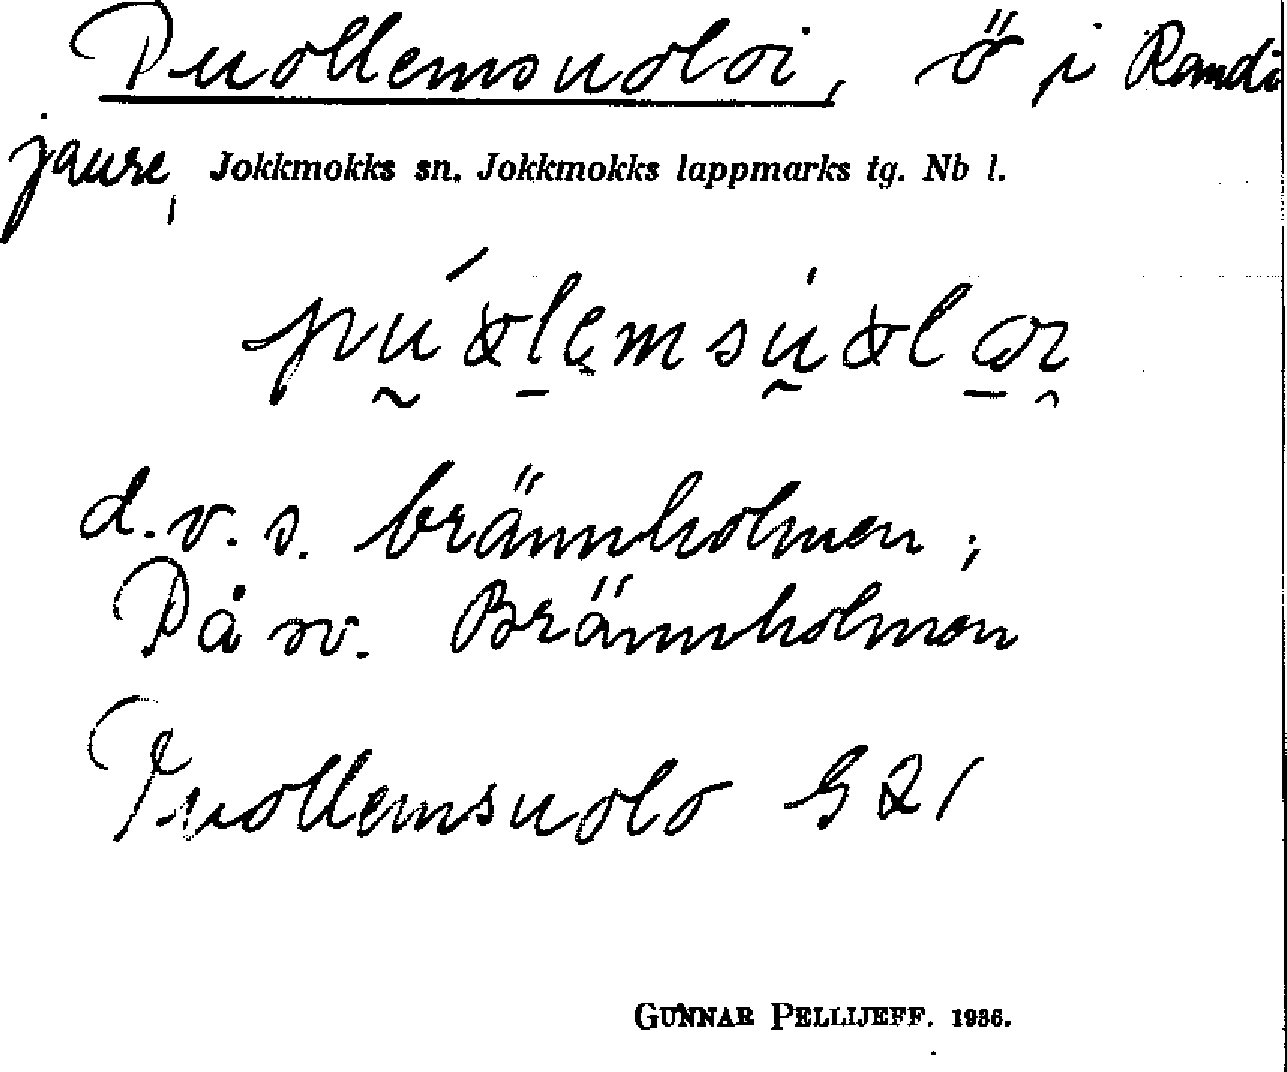 Puollemsuoloi, ö i Randi
jaure, Jokkmokks sn. Jokkmokks lappmarks tg. Nb l.
d.v.s. brännholmen;
På sv. Brännholmen
Puollemsuolo G 21
GUNNAR PELLIJEFF. 1936.